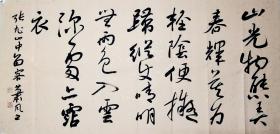 山光物態弄
春輝莫為
輕陰便擬
歸縱使晴明
無雨色入雲
深處亦沾
衣
張旭山中留客